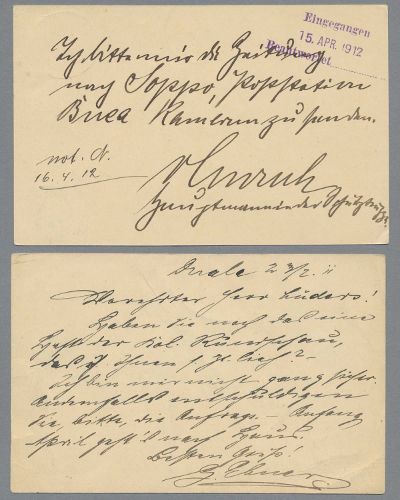 Eingegangen
15. APR. 1912
Beantwortet
Ich bitte mir die Zeitung
nach Soppo, Poststation
Buea Kamerun zu senden.
not. N.
16.4.12
Hauptmann in der Schutztruppe
Duala 23/2. 11
Verehrter Herr Lüders!
Haben Sie noch das eine
Heft der Kol. Rundschau,
das ich Ihnen s. Zt. lieh? -
Ich bin mir nicht ganz sicher.
Andernfalls entschuldigen
Sie, bitte, die Anfrage. - Anfang
April geht's nach Haus.
Besten Gruß!